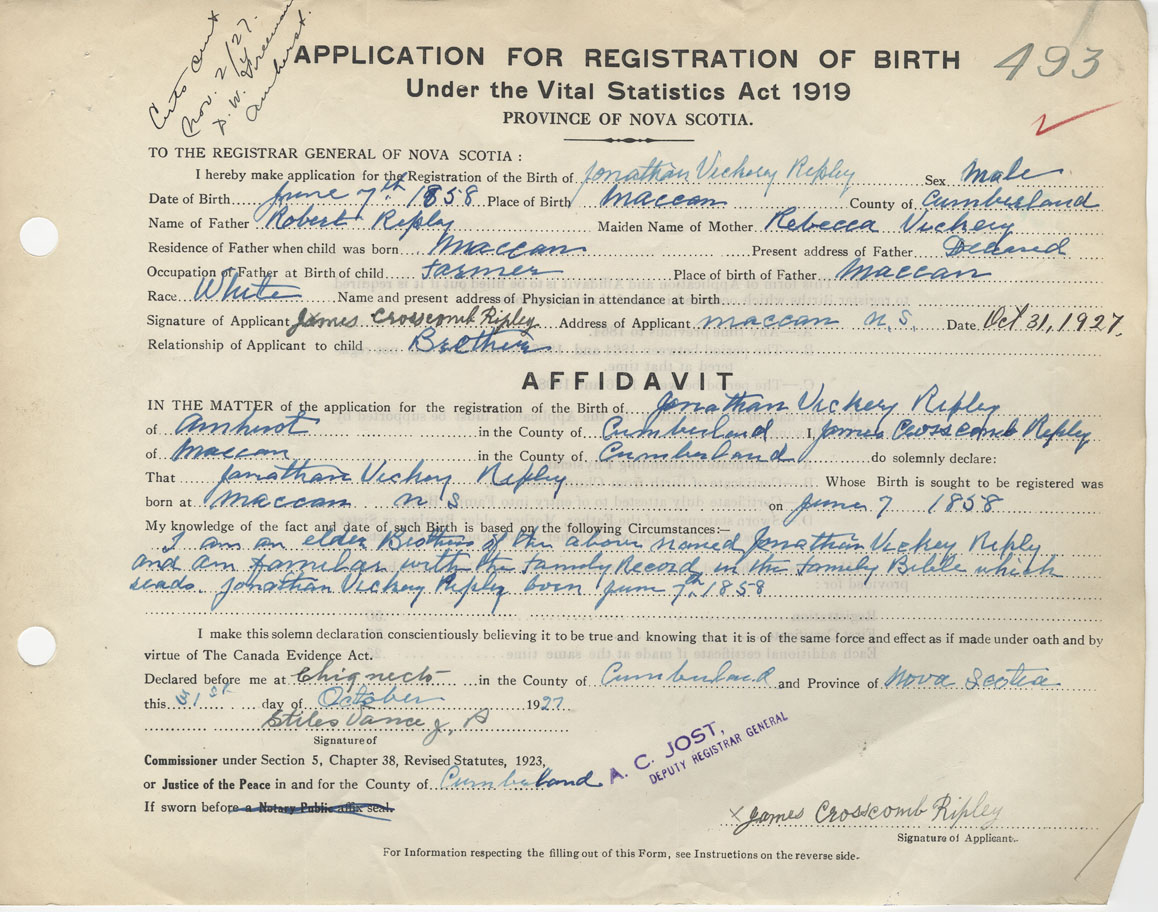 Nov. 2/27.
Amherst.
APPLICATION FOR REGISTRATION OF BIRTH
493
Under the Vital Statistics Act 1919
PROVINCE OF NOVA SCOTIA.
TO THE REGISTRAR GENERAL OF NOVA SCOTIA :
I hereby make application for the Registration of the Birth of Jonathan Vickery Ripley Sex Male
Date of Birth June 7th. 1858 Place of Birth Maccan County of Cumberland
Name of Father Robert Ripley Maiden Name of Mother Rebecca Vickery
Residence of Father when child was born Maccan Present address of Father
Occupation of Father at Birth of child Farmer Place of birth of Father Maccan
Race White Name and present address of Physician in attendance at birth
Signature of Applicant James Crosscomb Ripley Address of Applicant Maccan N.S. Date Oct 31, 1927.
Relationship of Applicant to child Brother
AFFIDAVIT
IN THE MATTER of the application for the registration of the Birth of Jonathan Vickery Ripley
of Amherst in the County of Cumberland I, James Crosscomb Ripley
of Maccan in the County of Cumberland do solemnly declare:
That Jonathan Vickery Ripley Whose Birth is sought to be registered was
born at Maccan N S on June 7 1858
My knowledge of the fact and date of such Birth is based on the following Circumstances:—
I am an elder Brother of the above named Jonathan Vickery Ripley
and am familiar with the Family Record in the Family Bible which
reads. Jonathan Vickery Ripley born June 7th. 1858
I make this solemn declaration conscientiously believing it to be true and knowing that it is of the same force and effect as if made under oath and by
virtue of The Canada Evidence Act.
Declared before me at Chignecto in the County of Cumberland and Province of Nova Scotia
this 31st day of October 1927.
Stiles Vance J. P
Signature of
Commissioner under Section 5, Chapter 38, Revised Statutes, 1923,
or Justice of the Peace in and for the County of Cumberland
A. C. JOST,
DEPUTY REGISTRAR GENERAL
If sworn before a Notary Public affix seal.
x James Crosscomb Ripley
Signature of Applicant.
For Information respecting the filling out of this Form, see Instructions on the reverse side.